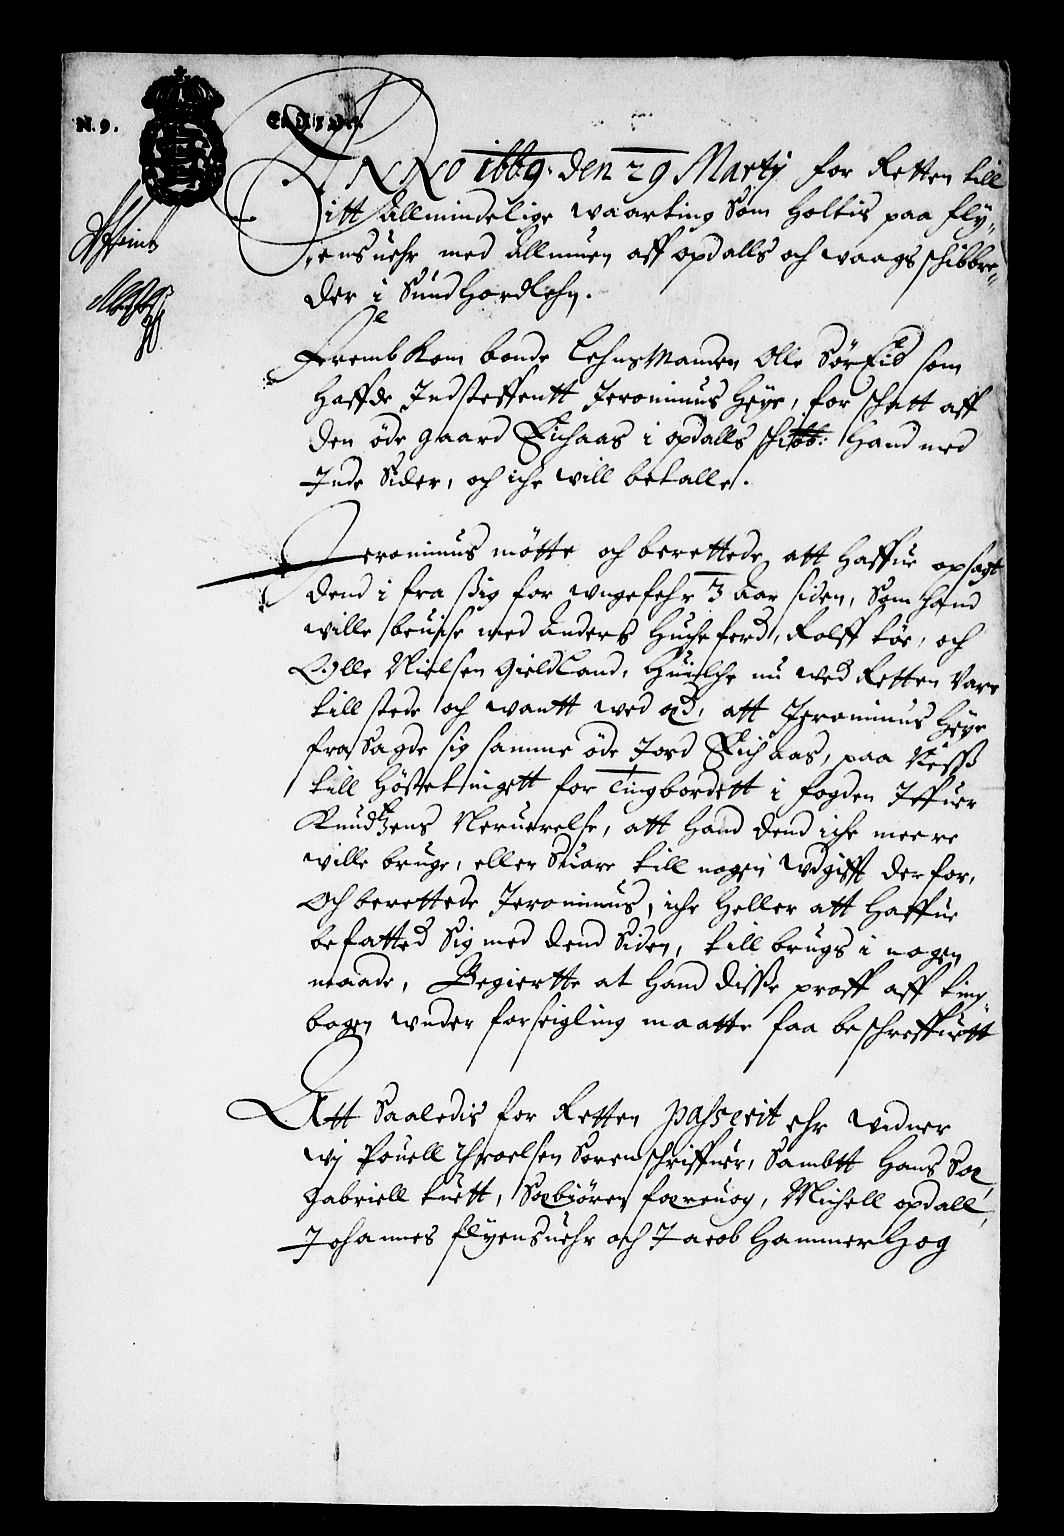 N. 9.
ANNO 1669. den 29 Martij for Retten till
itt Allmindelige waarting Som Holtis paa Fly,,
,,ensuehr med Allmuen aff opdalls och waags schibbre,,
der i Sundhordlehn.
Frembkom bonde Lehnsmanden Olle Sørfild som
Haffde Indsteffnett Jeronimus Heye, for schatt aff
den øde gaard Eichaas i opdalls schibb: Hand med
Inde Sider, och iche will betalle.
Jeronimus møtte och berettede att Haffue opsagt
dend i fra sig for ungefehr 3 Aar siden, Som hand
wille beuise med Anders Hucheferd, Rolff Løe, och
Olle Nielsen Gieldland, Huilche nu wed Retten Vare
till stede och wantt wed æd, att Jeronimus Heye
frasagde sig samme øde Jord Eichaas, paa Næss
till Høstetingett for Tingbordett i fogden Iffuer
Knudzens Neruerelse, att Hand dend iche meere
wille bruge, eller Suare till nogen wdgifft derfor,
Och berettede Jeronimus, iche Heller att Haffue
befatted Sig med dend Siden, till brugs i nogen
maade, Begiertte at Hand disse proff aff ting,,
bogen under forseigling maatte faa beschreffuett
Att Saaledis for Retten passerit ehr widner
Wj Pouell Chroelsen Sorenschriffuer, Sambtt Hans Sæ,
Gabriell tuett, Sæbiøren Færeuog, Michell opdall,
Johannes Flyensuehr och Jacob Hammerhog